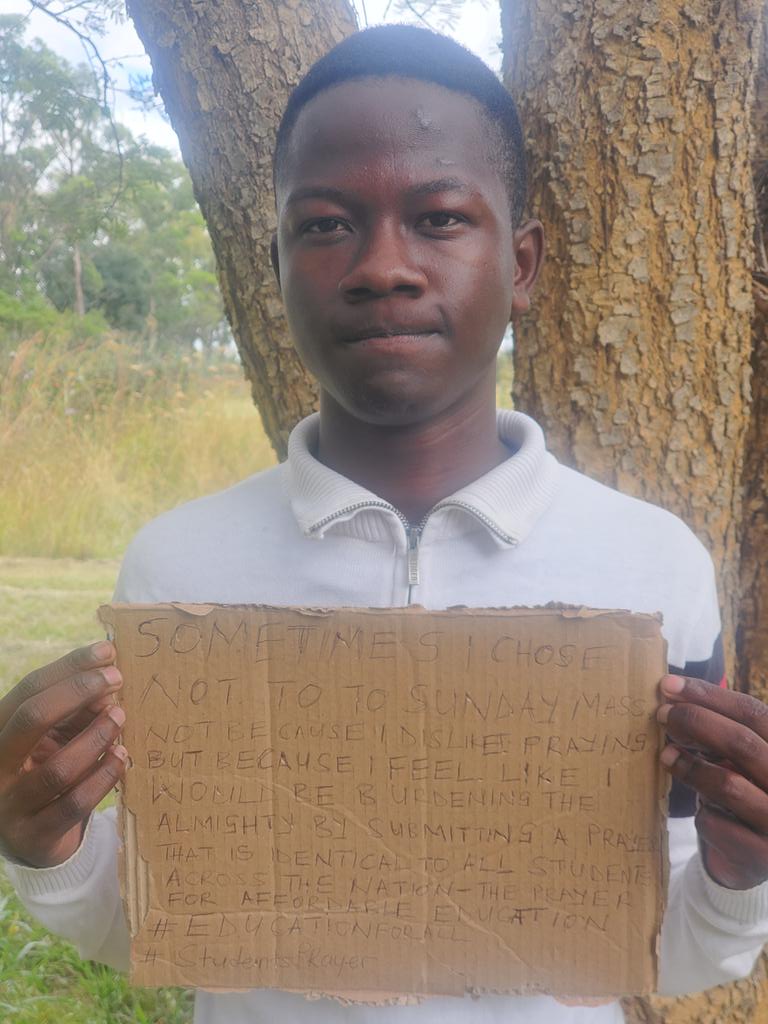 SOMETIMES I CHOSE
NOT TO TO SUNDAY MASS
NOT BECAUSE I DISLIKE PRAYING
BUT BECAUSE I FEEL LIKE I
WOULD BE BURDENING THE
ALMIGHTY BY SUBMITTING A PRAYER
THAT IS IDENTICAL TO ALL STUDENTS
ACROSS THE NATION-THE PRAYER
FOR AFFORDABLE EDUCATION
#EDUCATIONFORALL
#StudentsPrayer